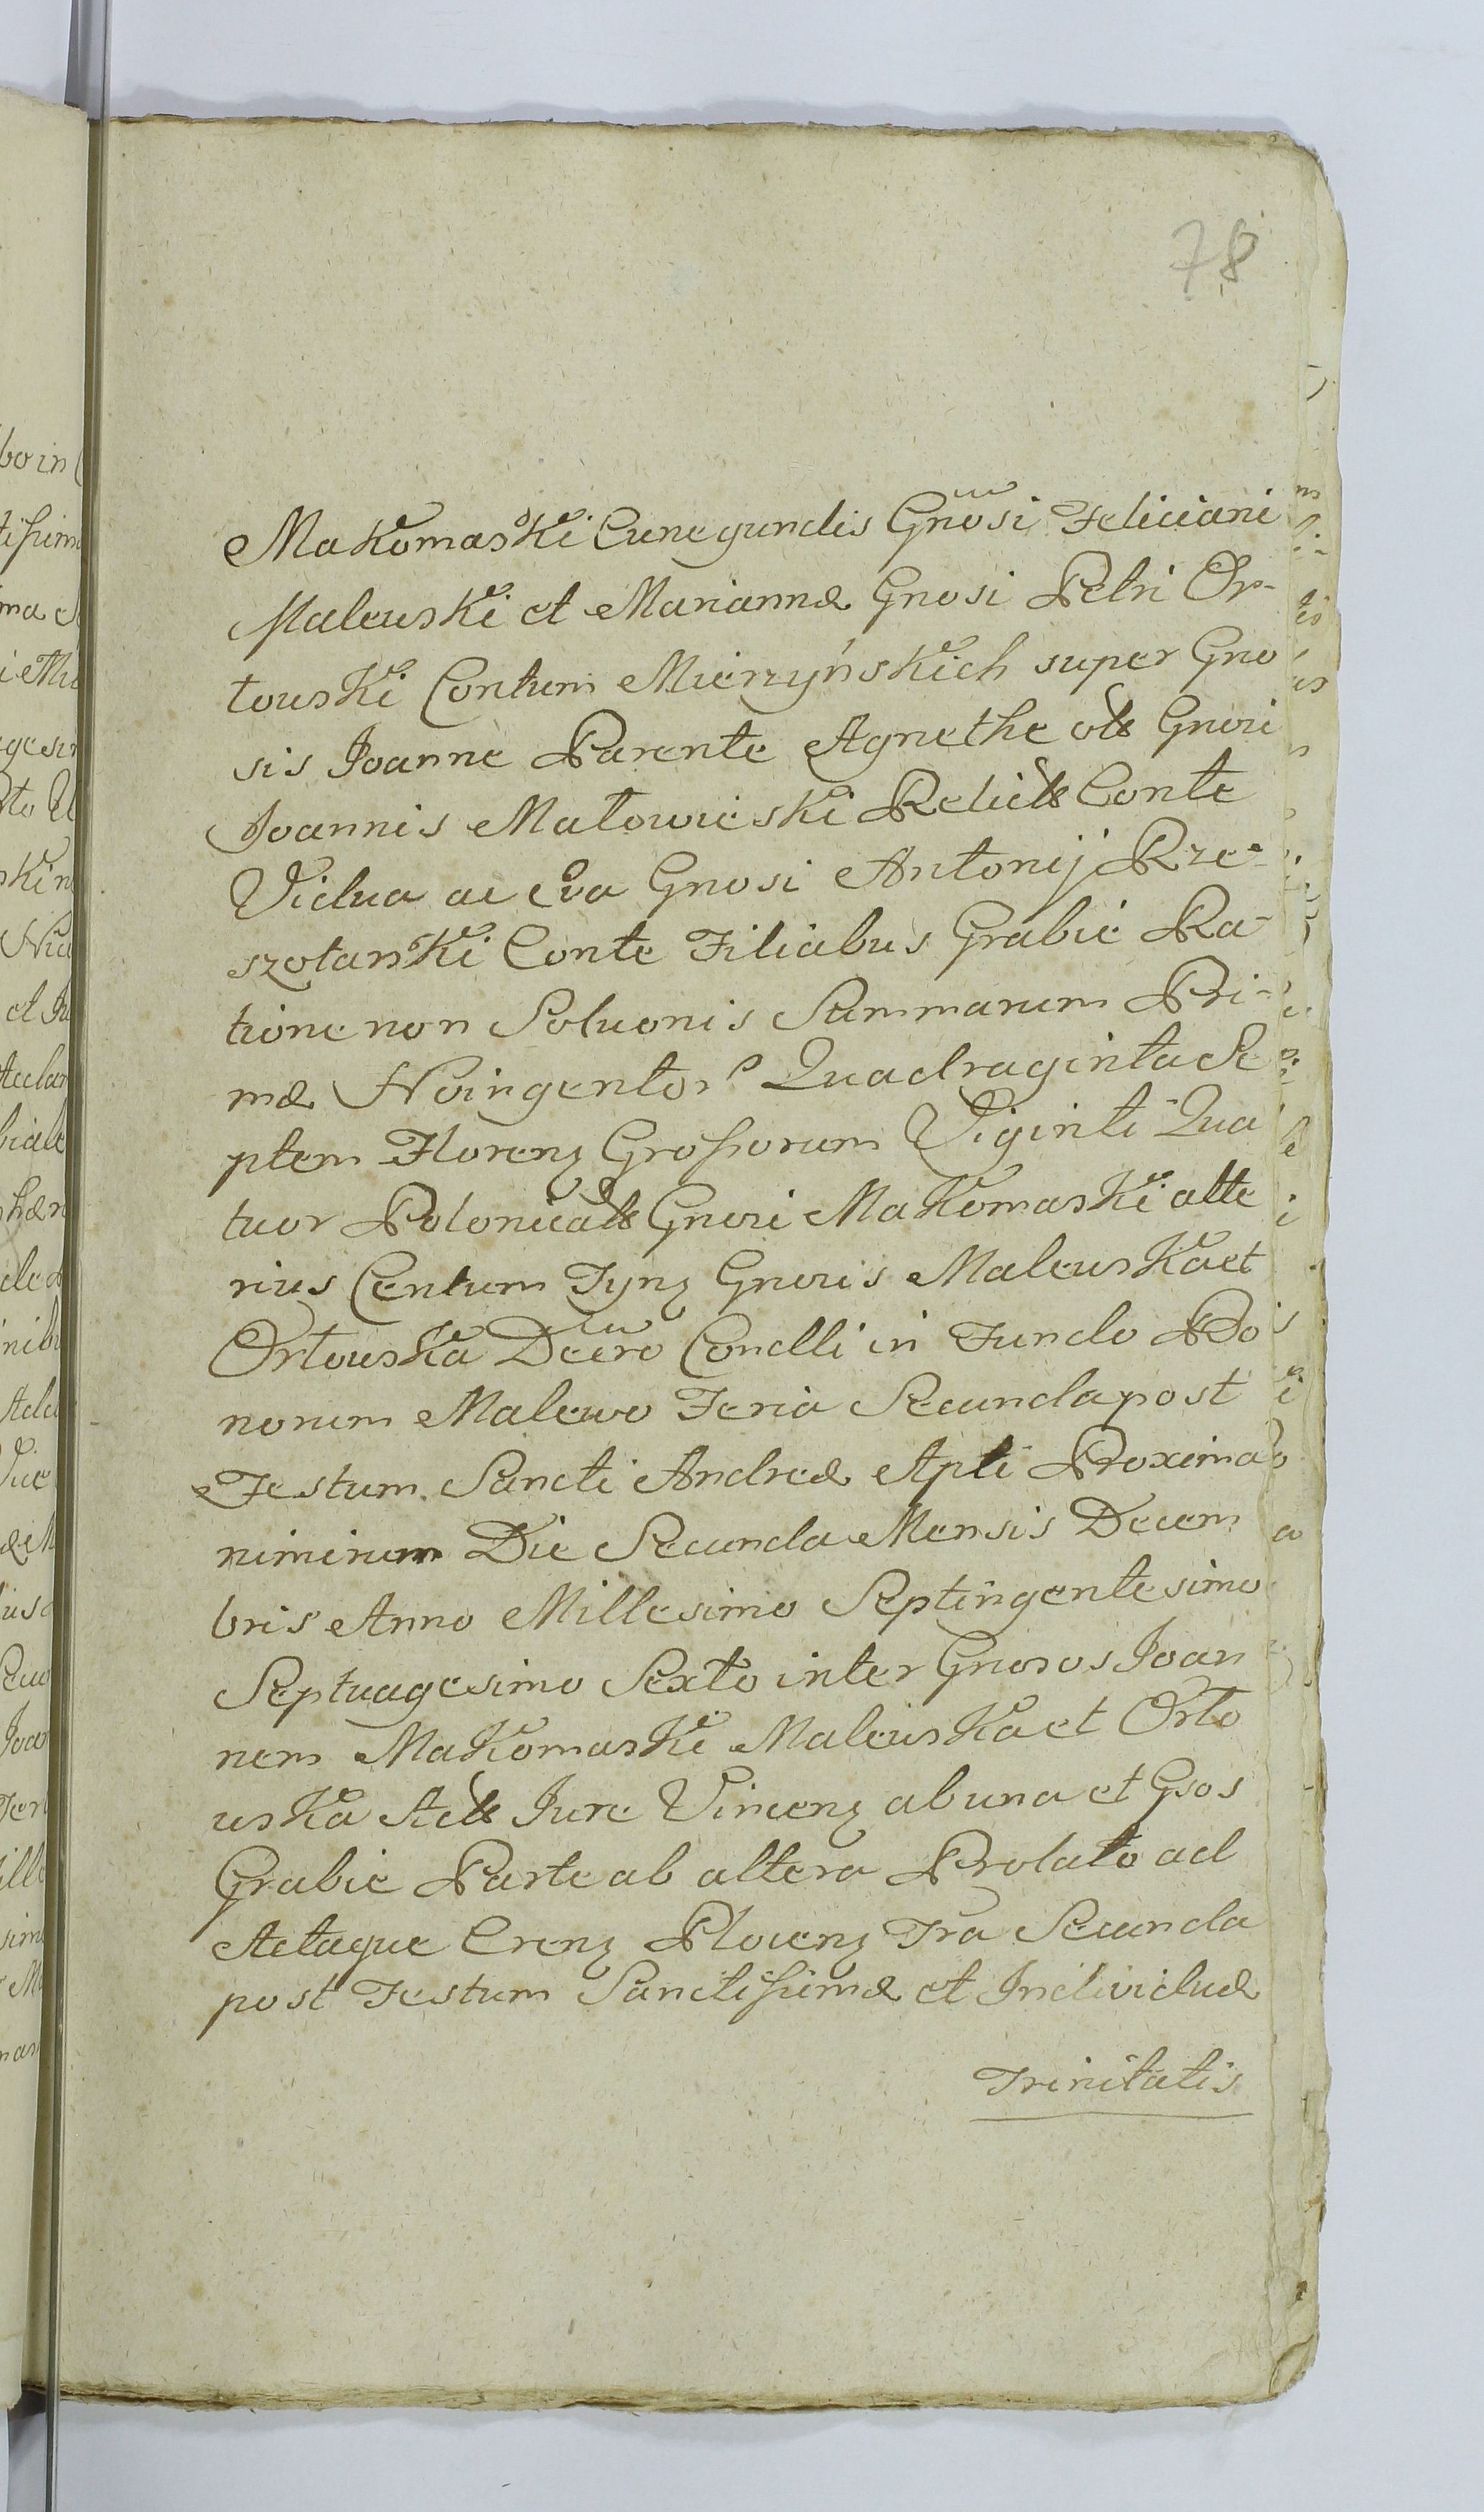 78
Makomaski Cunegundis Gnosi Feliciani
Malewski et Mariannæ Gnosi Petri Or-
łowski Contum Mierzyńskich super Gno
sis Joanne Parente Agnethe olt Gnosi
Joannis Małowieski Relict Conte
Vidua ac Eva Gnosi Antonij Rze-
szotarski Conte Filiabus Grabie Ra-
tione non Soluonis Summarum Pri-
mæ Noingentor Quadraginta Se
ptem Florenz Grossorum Viginti Qua
tuor Polonicalt Gnosi Makomaski alte
rius Centum Tynz Gnosis Malewska et
Orłowska Decro Condlli in Fundo Bo
norum Malewo Feria Secunda post
Festum Sancti Andreæ Apli Proxima
nimirum Die Secunda Mensis Decem
bris Anno Millesimo Septingentesimo
Septuagesimo Sexto inter Gnosos Joan
nem Makomaski Malewska et Orło
wska Act Jure Vincenz ab una et Gsos
Grabie Parte ab altera Prolato ad
Actaque Crenz Plocenz Fra Secunda
post Festum Sanctissimæ et Individuæ
Trinitatis